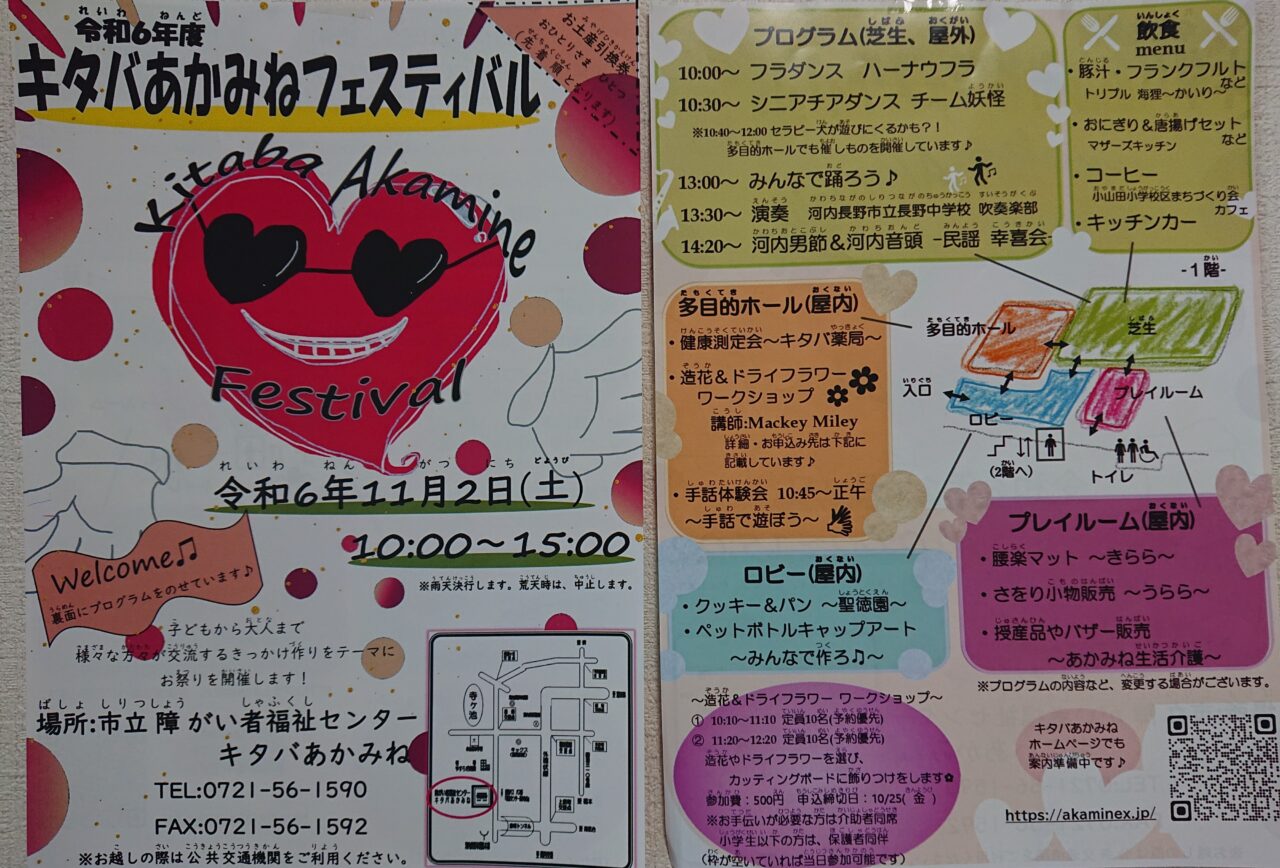 令和6年度
キタバあかみねフェスティバル
お土産引換券
おひとりさま ひとつ
(先着順となります)
Kitaba Akamine
Festival
令和6年11月2日(土)
10:00～15:00
※雨天決行します。荒天時は、中止します。
Welcome♫
裏面にプログラムをのせています♪
子どもから大人まで
様々な方々が交流するきっかけ作りをテーマに
お祭りを開催します！
場所:市立障がい者福祉センター
キタバあかみね
TEL:0721-56-1590
FAX:0721-56-1592
※お越しの際は公共交通機関をご利用ください。
寺ヶ池
プログラム(芝生、屋外)
10:00～ フラダンス ハーナウフラ
10:30～ シニアチアダンス チーム妖怪
※10:40～12:00 セラピー犬が遊びにくるかも？！
多目的ホールでも催しものを開催しています♪
13:00～ みんなで踊ろう♪
13:30～ 演奏 河内長野市立長野中学校 吹奏楽部
14:20～ 河内男節＆河内音頭 -民謡 幸喜会-
飲食
menu
・豚汁・フランクフルト
など
トリプル 海狸～かいり～
・おにぎり＆唐揚げセット
など
マザーズキッチン
・コーヒー
小山田小学校区まちづくり会
カフェ
・キッチンカー
-1階-
多目的ホール
芝生
入口
ロビー
プレイルーム
(2階へ)
トイレ
多目的ホール(屋内)
・健康測定会～キタバ薬局～
・造花＆ドライフラワー
ワークショップ
講師:Mackey Miley
詳細・お申込み先は下記に
記載しています♪
・手話体験会 10:45～正午
～手話で遊ぼう～
ロビー(屋内)
・クッキー＆パン ～聖徳園～
・ペットボトルキャップアート
～みんなで作ろ♫～
プレイルーム(屋内)
・腰楽マット ～きらら～
・さをり小物販売 ～うらら～
・授産品やバザー販売
～あかみね生活介護～
※プログラムの内容など、変更する場合がございます。
～造花＆ドライフラワー ワークショップ～
① 10:10～11:10 定員10名(予約優先)
② 11:20～12:20 定員10名(予約優先)
造花やドライフラワーを選び、
カッティングボードに飾りつけをします✿
参加費：500円 申込締切日：10/25(金)
※お手伝いが必要な方は介助者同席
小学生以下の方は、保護者同伴
(枠が空いていれば当日参加可能です)
キタバあかみね
ホームページでも
案内準備中です♪
https://akaminex.jp/